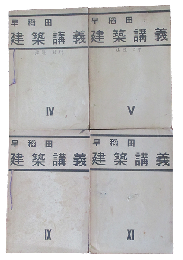 早稲田
建築講義
IV
早稲田
建築講義
V
早稲田
建築講義
IX
早稲田
建築講義
XI